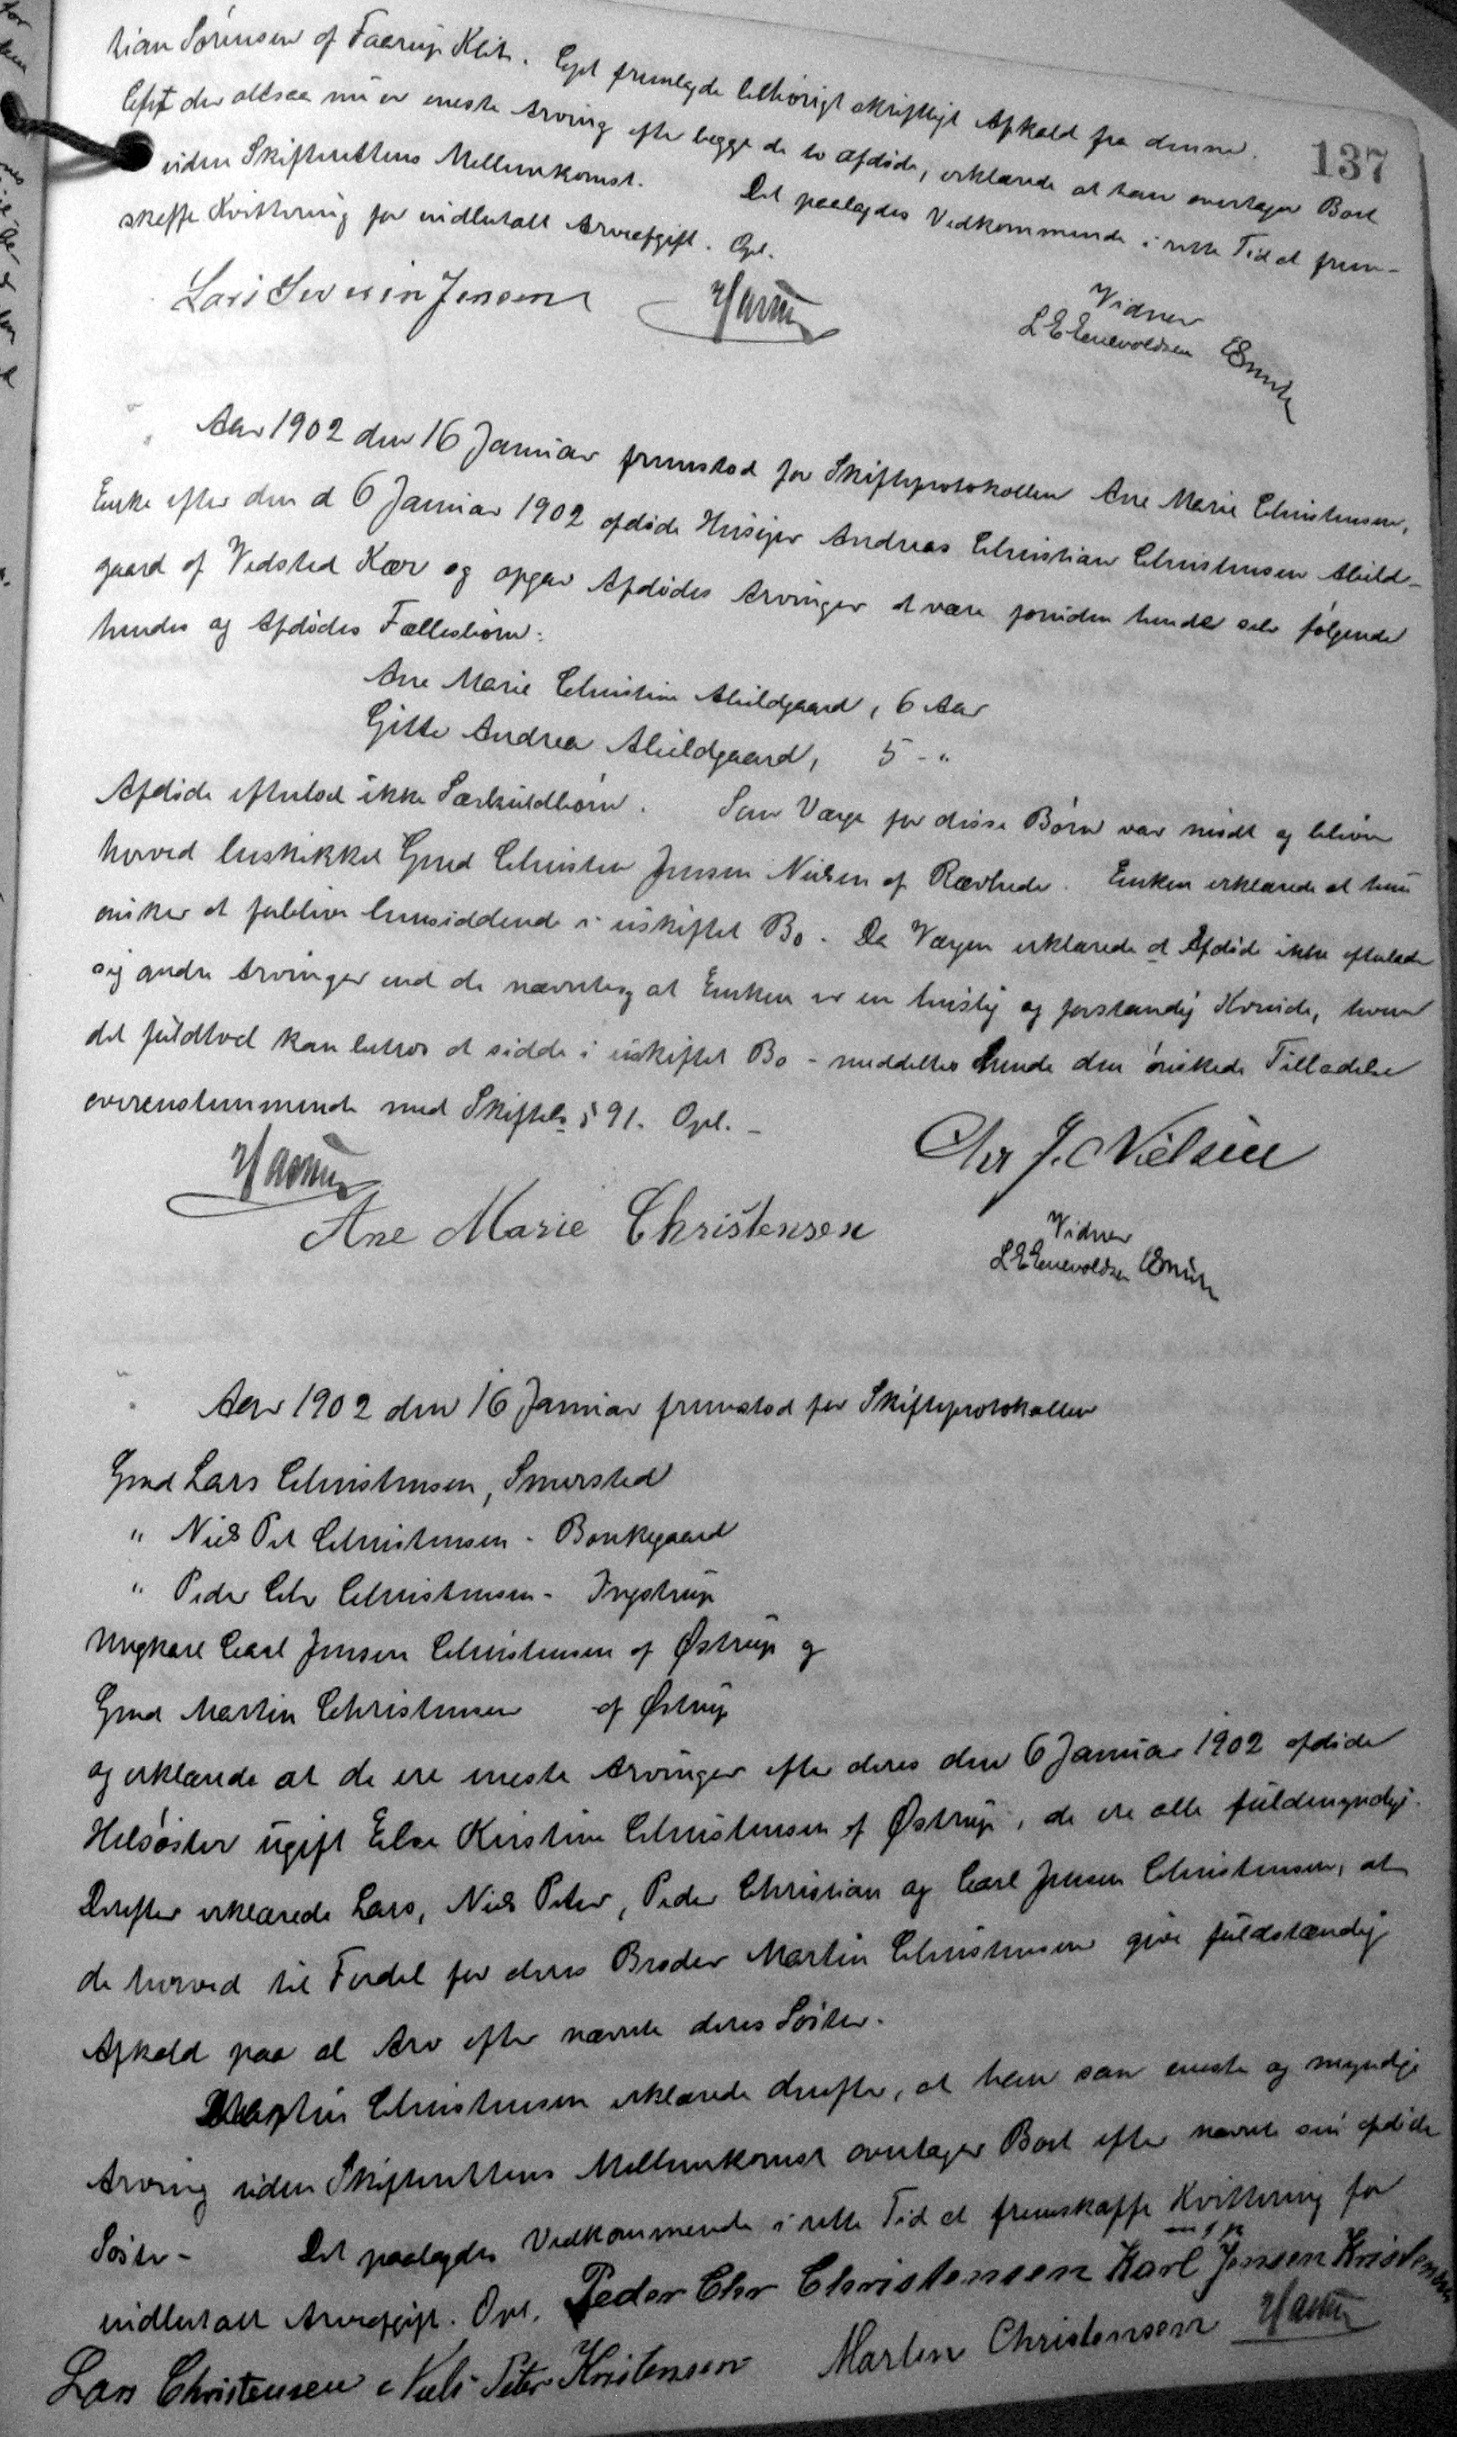 137
tian Sørensen af Faarup Klit. Cpt fremlagde behørigt skriftligt Afkald fra denne.
Cpt der altsaa nu er eneste Arving efter begge de to Afdøde, erklærede at han overtager Boet
uden Skifterettens Mellemkomst. Det paalagdes Vedkommende i rette Tid at frem-
skaffe Kvittering for indbetalt Arveafgift. Opl.
Lars Severin Jensen
Vidner
L E Enevoldsen
Aar 1902 den 16 Januar fremstod for Skifteprotokollen Ane Marie Christensen,
Enke efter den d 6 Januar 1902 afdøde Husejer Andreas Christian Christensen Abild-
gaard af Vedsted Kær og opgav Afdødes Arvinger at være foruden hende selv følgende
hendes og Afdødes Fællesbørn:
Ane Marie Christine Abildgaard, 6 Aar
Gitte Andrea Abildgaard, 5 - "
Afdøde efterlod ikke Særkuldbørn. Som Værge for disse Børn var mødt og bliver
herved beskikket Gmd Christen Jensen Nielsen af Rævhede. Enken erklærede at hun
ønsker at forblive hensiddende i uskiftet Bo. Da Værgen erklærede at Afdøde ikke efterlader
sig andre Arvinger end de nævnte, og at Enken er en huslig og forstandig Kvinde, hvem
det fuldtvel kan betros at sidde i uskiftet Bo - meddeltes hende den ønskede Tilladelse
overensstemmende med Skiftel. § 91. Opl. -
Chr J. C Nielsen
Ane Marie Christensen
Vidner
L E Enevoldsen
Aar 1902 den 16 Januar fremstod for Skifteprotokollen
Gmd Lars Christensen, Smersted
" Niels Pet Christensen - Bonkegaard
" Peder Chr Christensen - Ingstrup
Ungkarl Carl Jensen Christensen af Østrup og
Gmd Martin Christensen af Østrup
og erklærede at de ere eneste Arvinger efter deres den 6 Januar 1902 afdøde
Helsøster ugift Else Kirstine Christensen af Østrup, de ere alle fuldmyndige.
Derefter erklærede Lars, Niels Peter, Peder Christian og Carl Jensen Christensen, at
de herved til Fordel for deres Broder Martin Christensen give fuldstændig
Afkald paa al Arv efter nævnte deres Søster.
Martin Christensen erklærede derefter, at han som eneste og myndige
Arving uden Skifterettens Mellemkomst overtager Boet efter nævnte sin afdøde
Søster - Det paalagdes Vedkommende i rette Tid at fremskaffe Kvittering for
indbetalt Arveafgift. Opl. Peder Chr Christensen Karl Jensen Kristensen
Lars Christensen Niels Peter Kristensen Marten Christensen